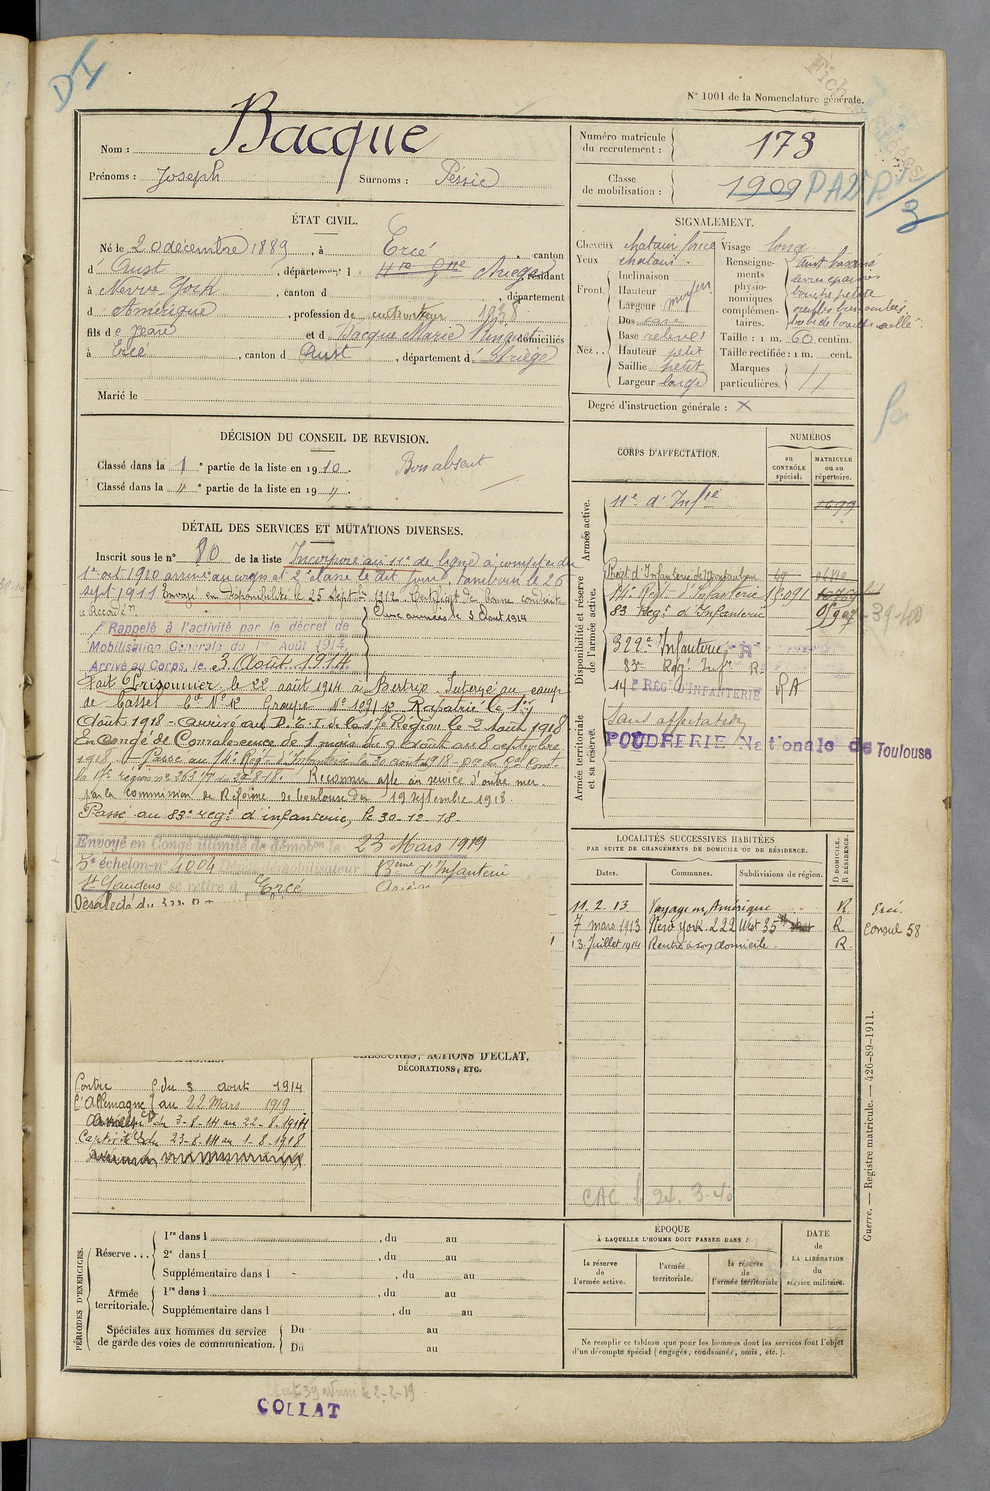 DI
N° 1001 de la Nomenclature générale.
Nom : Bacque
Prénoms : Joseph Surnoms : Pessie
Numéro matricule du recrutement : 173
Classe de mobilisation : 1909 PA2 R/3
ÉTAT CIVIL.
Né le 20 décembre 1889, à Ercé, canton
d'Oust, département d Ariège, résidant
à Nevve Yock, canton d , département
d'Amérique, profession de cultivateur 1938
fils de Jean et d Bacque Marie domiciliés
à Ercé, canton d'Oust, département d'Ariège
Marié le
SIGNALEMENT.
Cheveux chatain foncé Visage long
Yeux chatain.
Front. Inclinaison
Hauteur moyen
Largeur
Nez.. Dos cave
Base relevé
Hauteur petit
Saillie petit
Largeur large
Renseignements physionomiques complémentaires.
Taille : 1 m. 60 centim.
Taille rectifiée : 1 m. cent.
Marques particulières. //
Degré d'instruction générale : X
DÉCISION DU CONSEIL DE REVISION.
Classé dans la 1e partie de la liste en 1910. Bon absent
Classé dans la " e partie de la liste en 19 ".
DÉTAIL DES SERVICES ET MUTATIONS DIVERSES.
Inscrit sous le n° 80 de la liste Incorporé au 11e de ligne à compter du
1er oct 1910 arrivé au corps et 2e classe le dit jour, tambour le 26
sept 1911 Envoyé en disponibilité le 25 Septbre 1912 Certificat de bonne conduite
Accordé
Rappelé à l'activité par le décret de
Mobilisation Générale du 1er Août 1914,
Arrivé au Corps le 3 Août 1914
Fait Prisonnier le 22 août 1914 à Bertrix Interné au camp
de Cassel Rapatrié le 1er
Août 1918 - arrivé au D.E.I. de la 17e Région le 2 Août 1918
En Congé de Convalescence de 1 mois du 9 Août au 8 septembre
1918. Passé au 14e Régt d'Infanterie le 30 août 1918
Reconnu apte au service d'outre mer
par la commission de Réforme de Toulouse du 19 septembre 1918.
Passé au 83e regt d'infanterie, le 30-12-18
Envoyé en Congé illimité de démobon le 23 Mars 1919
5e échelon n° 4004 Dépôt démobilisateur 83ème d'Infanterie
St Gaudens se retire à Ercé
CORPS D'AFFECTATION.
NUMÉROS
au CONTRÔLE spécial.
MATRICULE ou au répertoire.
Armée active.
11e d'Infie 1699
Disponibilité et réserve de l'armée active.
14e Regt d'Infanterie
83 Regt d'Infanterie
322e Infanterie
83e Regt Inft
14e REGt D'INFANTERIE RA
Armée territoriale et sa réserve.
Sans affectation
POUDRERIE Nationale de Toulouse
LOCALITÉS SUCCESSIVES HABITÉES
PAR SUITE DE CHANGEMENTS DE DOMICILE OU DE RÉSIDENCE.
Dates. Communes. Subdivisions de région. D DOMICILE. R RÉSIDENCE.
11.2.13 Voyage en Amérique R
7 mars 1913 New York 222 West 35th R. Consul 58
13 Juillet 1914 Rentré à son domicile. R
BLESSURES, ACTIONS D'ÉCLAT,
DÉCORATIONS, ETC.
Contre du 3 août 1914
l'Allemagne au 22 Mars 1919
du 3-8-14 au 22-8-1914
Captivité du 23-8-14 au 1-8-1918
CAC le 24.3.40
PÉRIODES D'EXERCICES.
Réserve ... 1re dans l , du au
2e dans l , du au
Supplémentaire dans l , du au
Armée territoriale. 1re dans l , du au
Supplémentaire dans l , du au
Spéciales aux hommes du service de garde des voies de communication. Du au
Du au
ÉPOQUE
À LAQUELLE L'HOMME DOIT PASSER DANS :
la réserve de l'armée active.
l'armée territoriale.
la réserve de l'armée territoriale
DATE de LA LIBÉRATION du service militaire.
Ne remplir ce tableau que pour les hommes dont les services font l'objet
d'un décompte spécial (engagés, condamnés, omis, etc.).
Guerre. — Registre matricule. — 426-89-1911.
COLLAT